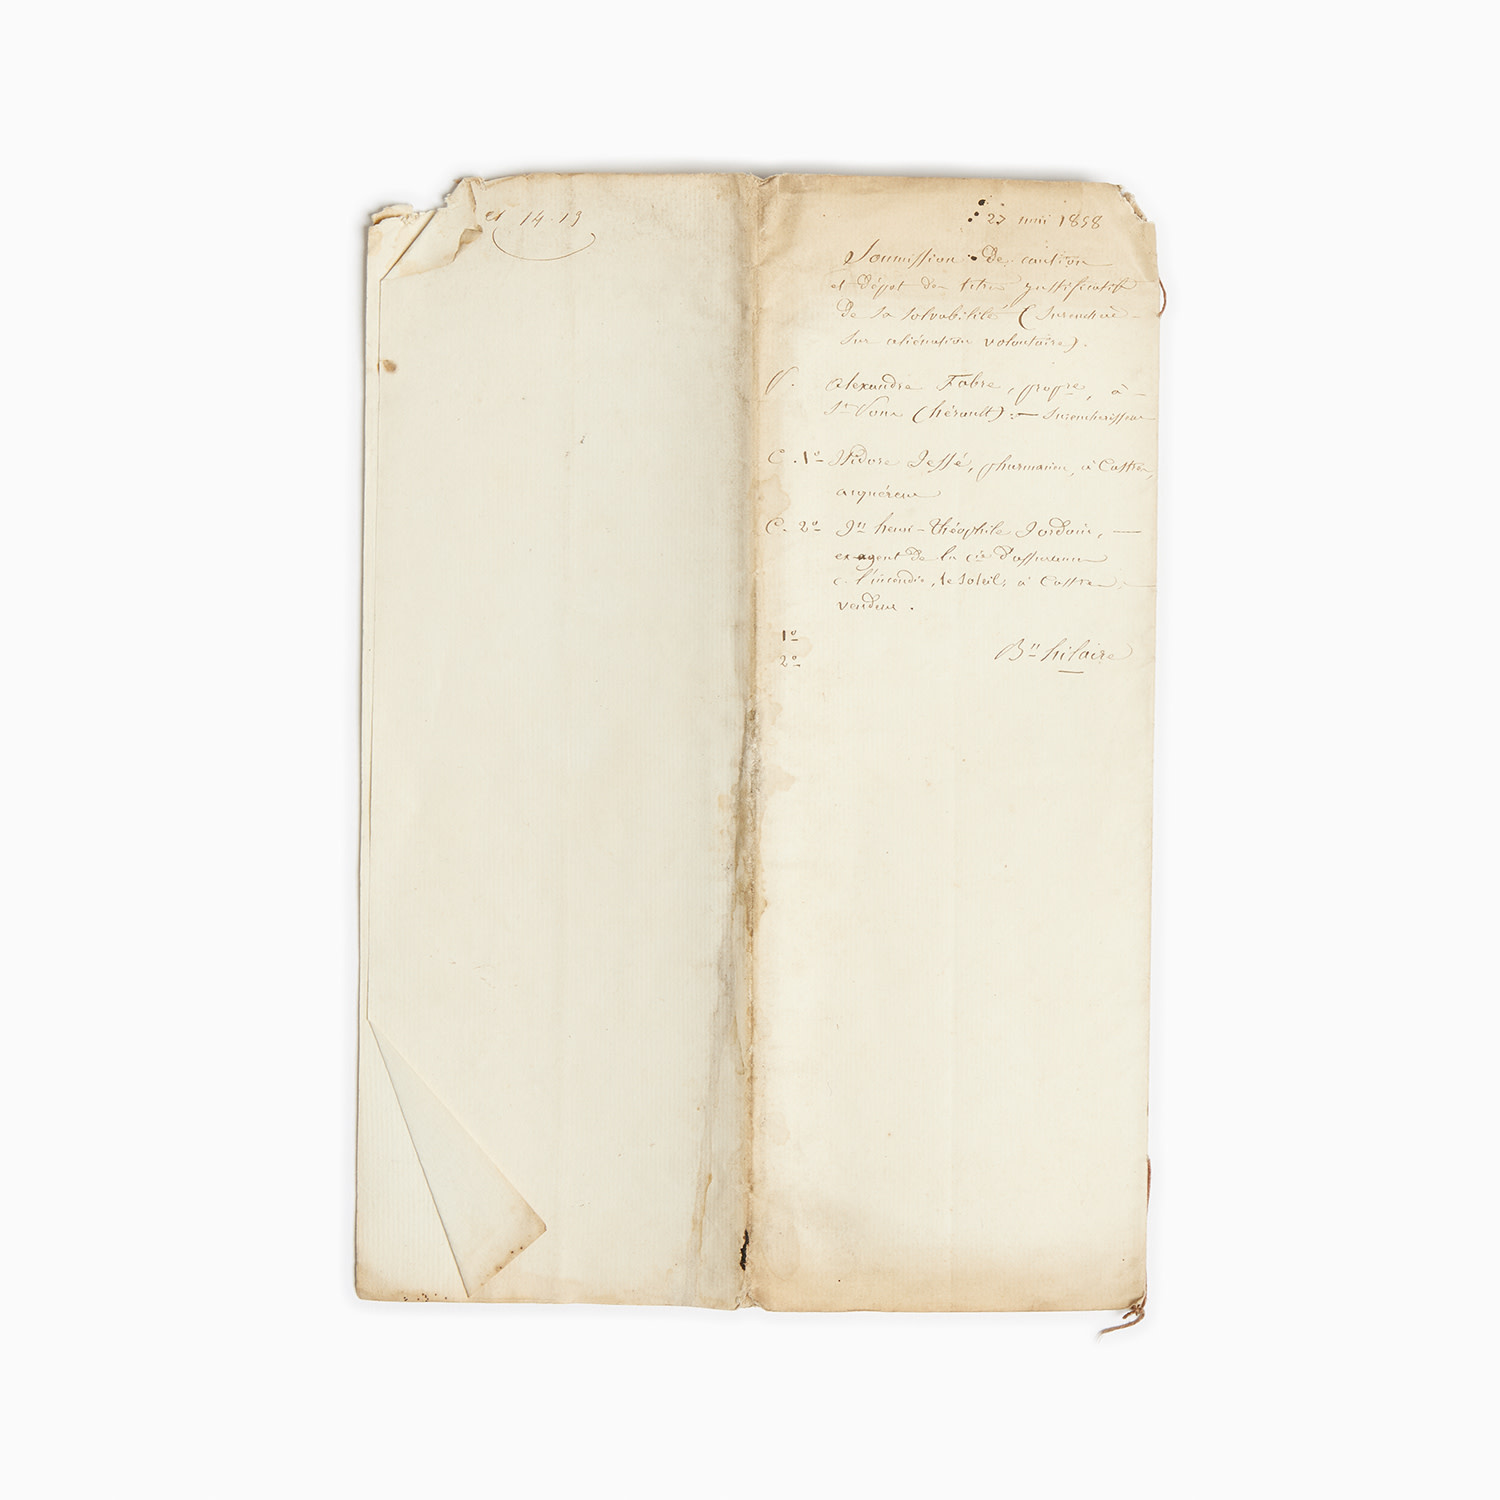 et 14-19
27 mai 1858
Soumission de caution
et dépot des titres justificatifs
de sa solvabilité (Surenchère
sur aliénation volontaire).
P. Alexandre Fabre, propre, à
St Pons (hérault) :— Surenchérisseur
C. 1º Isidore Jessé, pharmacien, à Castres,
acquéreur
C. 2º Jn henri-théophile Jordain, —
ex agent de la cie d'assurance
c. l'incendie, le Soleil, à Castres —
vendeur.
1º
2º
Bn hilaire